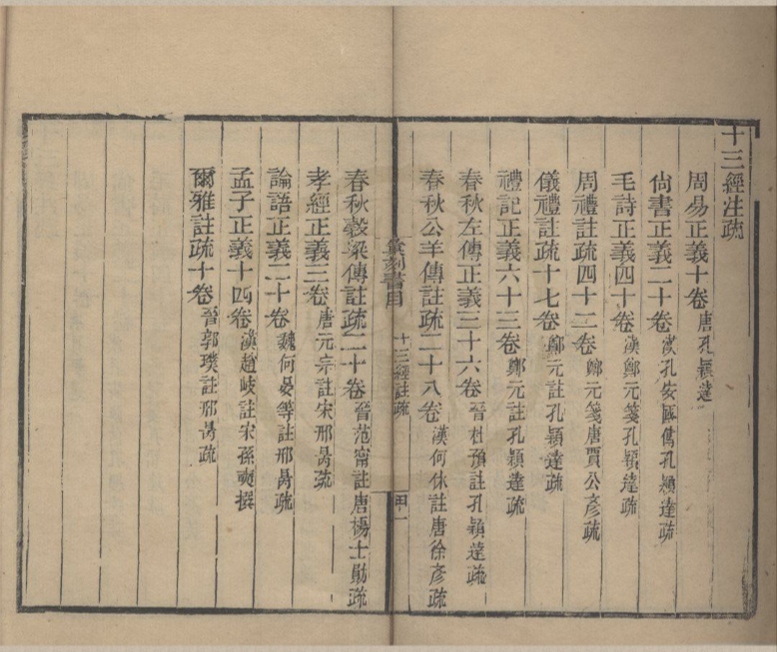 十三經注疏
周易正義十卷唐孔穎達
尙書正義二十卷漢孔安國傳孔穎達疏
毛詩正義四十卷漢鄭元箋孔穎達疏
周禮註疏四十二卷鄭元箋唐賈公彥疏
儀禮註疏十七卷鄭元註孔穎達疏
禮記正義六十三卷鄭元註孔穎達疏
春秋左傳正義三十六卷晉杜預註孔穎達疏
春秋公羊傳註疏二十八卷漢何休註唐徐彥疏
彙刻書目 十三經註疏 甲一
春秋穀梁傳註疏二十卷晉范甯註唐楊士勛疏
孝經正義三卷唐元宗註宋邢昺疏
論語正義二十卷魏何晏等註邢昺疏
孟子正義十四卷漢趙岐註宋孫奭撰
爾雅註疏十卷晉郭璞註邢昺疏